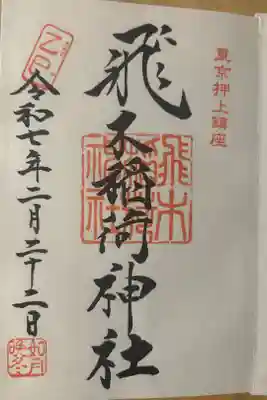 東京押上鎮座
飛木稲荷神社
令和七年二月二十二日
乙巳
飛木
稲荷
神社
如月
詣